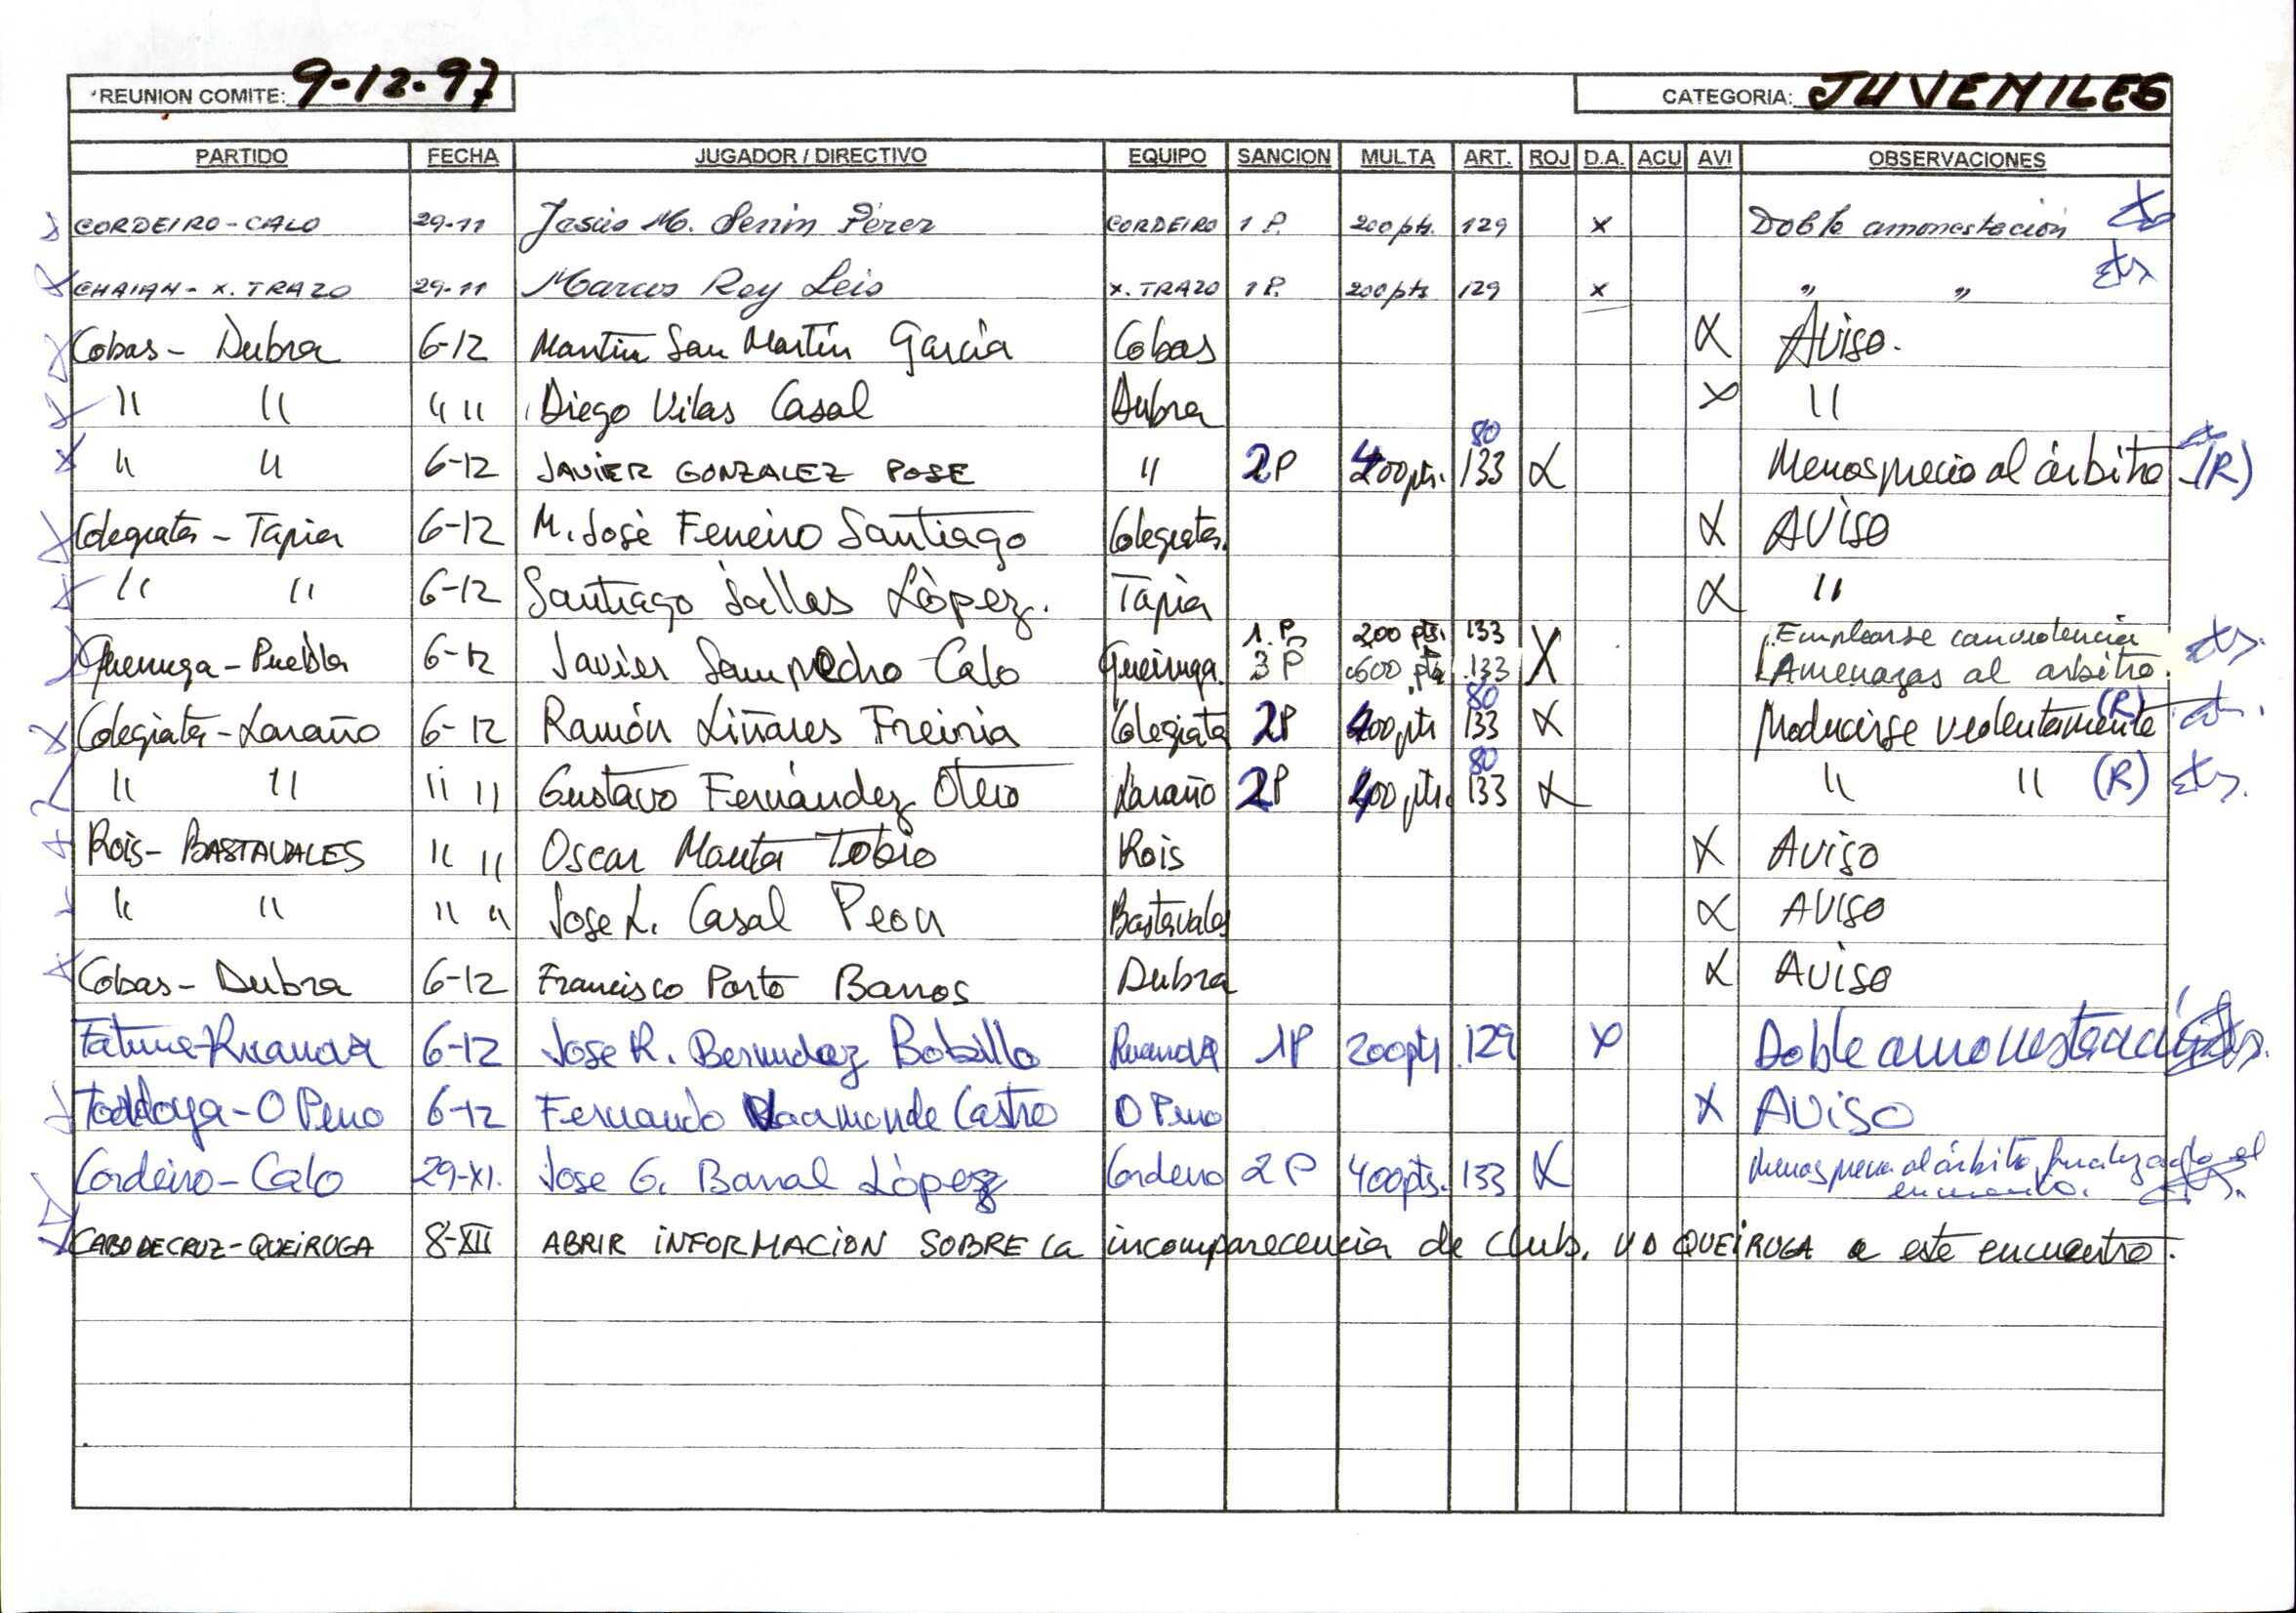 REUNION COMITE: 9-12-97 CATEGORIA: JUVENILES
PARTIDO FECHA JUGADOR / DIRECTIVO EQUIPO SANCION MULTA ART. ROJ D.A. ACU AVI OBSERVACIONES
CORDEIRO-CALO 29-11 Jesús M. Senin Pérez CORDEIRO 1 P. 200 pts. 129 x Doble amonestación
CHAIAN - X. TRAZO 29-11 Marcos Rey Leis X. TRAZO 1 P. 200 pts 129 x " "
Cobas - Dubra 6-12 Martín San Martín García Cobas X Aviso.
" " " " Diego Vilas Casal Dubra X "
" " 6-12 JAVIER GONZALEZ POSE " 2P 400 pts. 80 133 X Menosprecio al árbitro (R)
Colegiata - Tapia 6-12 M. José Ferreiro Santiago Colegiata. X AVISO
" " 6-12 Santiago Sallas López. Tapia X "
Queiruga - Puebla 6-12 Javier Sampedro Calo Queiruga. 1. P. 200 pts. 133 X Emplearse con violencia
3 P 600 pts 133 Amenazas al arbitro.
Colegiata - Laraño 6-12 Ramón Liñares Freiria Colegiata 2P 400 pts 80 133 X Producirse violentamente (R)
" " " " Gustavo Fernández Otero Laraño 2P 400 pts. 80 133 X " " (R)
Rois - BASTAVALES " " Oscar Manta Tobio Rois X Aviso
" " " " Jose L. Casal Peon Bastavales X AVISO
Cobas - Dubra 6-12 Francisco Porto Barros Dubra X AVISO
6-12 Jose R. Bermudez Bobillo 1P 200 pts. 129 X Doble amonestación
- O Pino 6-12 Fernando Vaamonde Castro O Pino X AVISO
Cordeiro - Calo 29-XI. Jose G. Barral López Cordeiro 2 P 400 pts. 133 X Menosprecio al árbitro, finalizado el
encuentro.
CABO DE CRUZ - QUEIRUGA 8-XII ABRIR INFORMACION SOBRE LA incomparecencia de Club. UD QUEIRUGA a este encuentro.